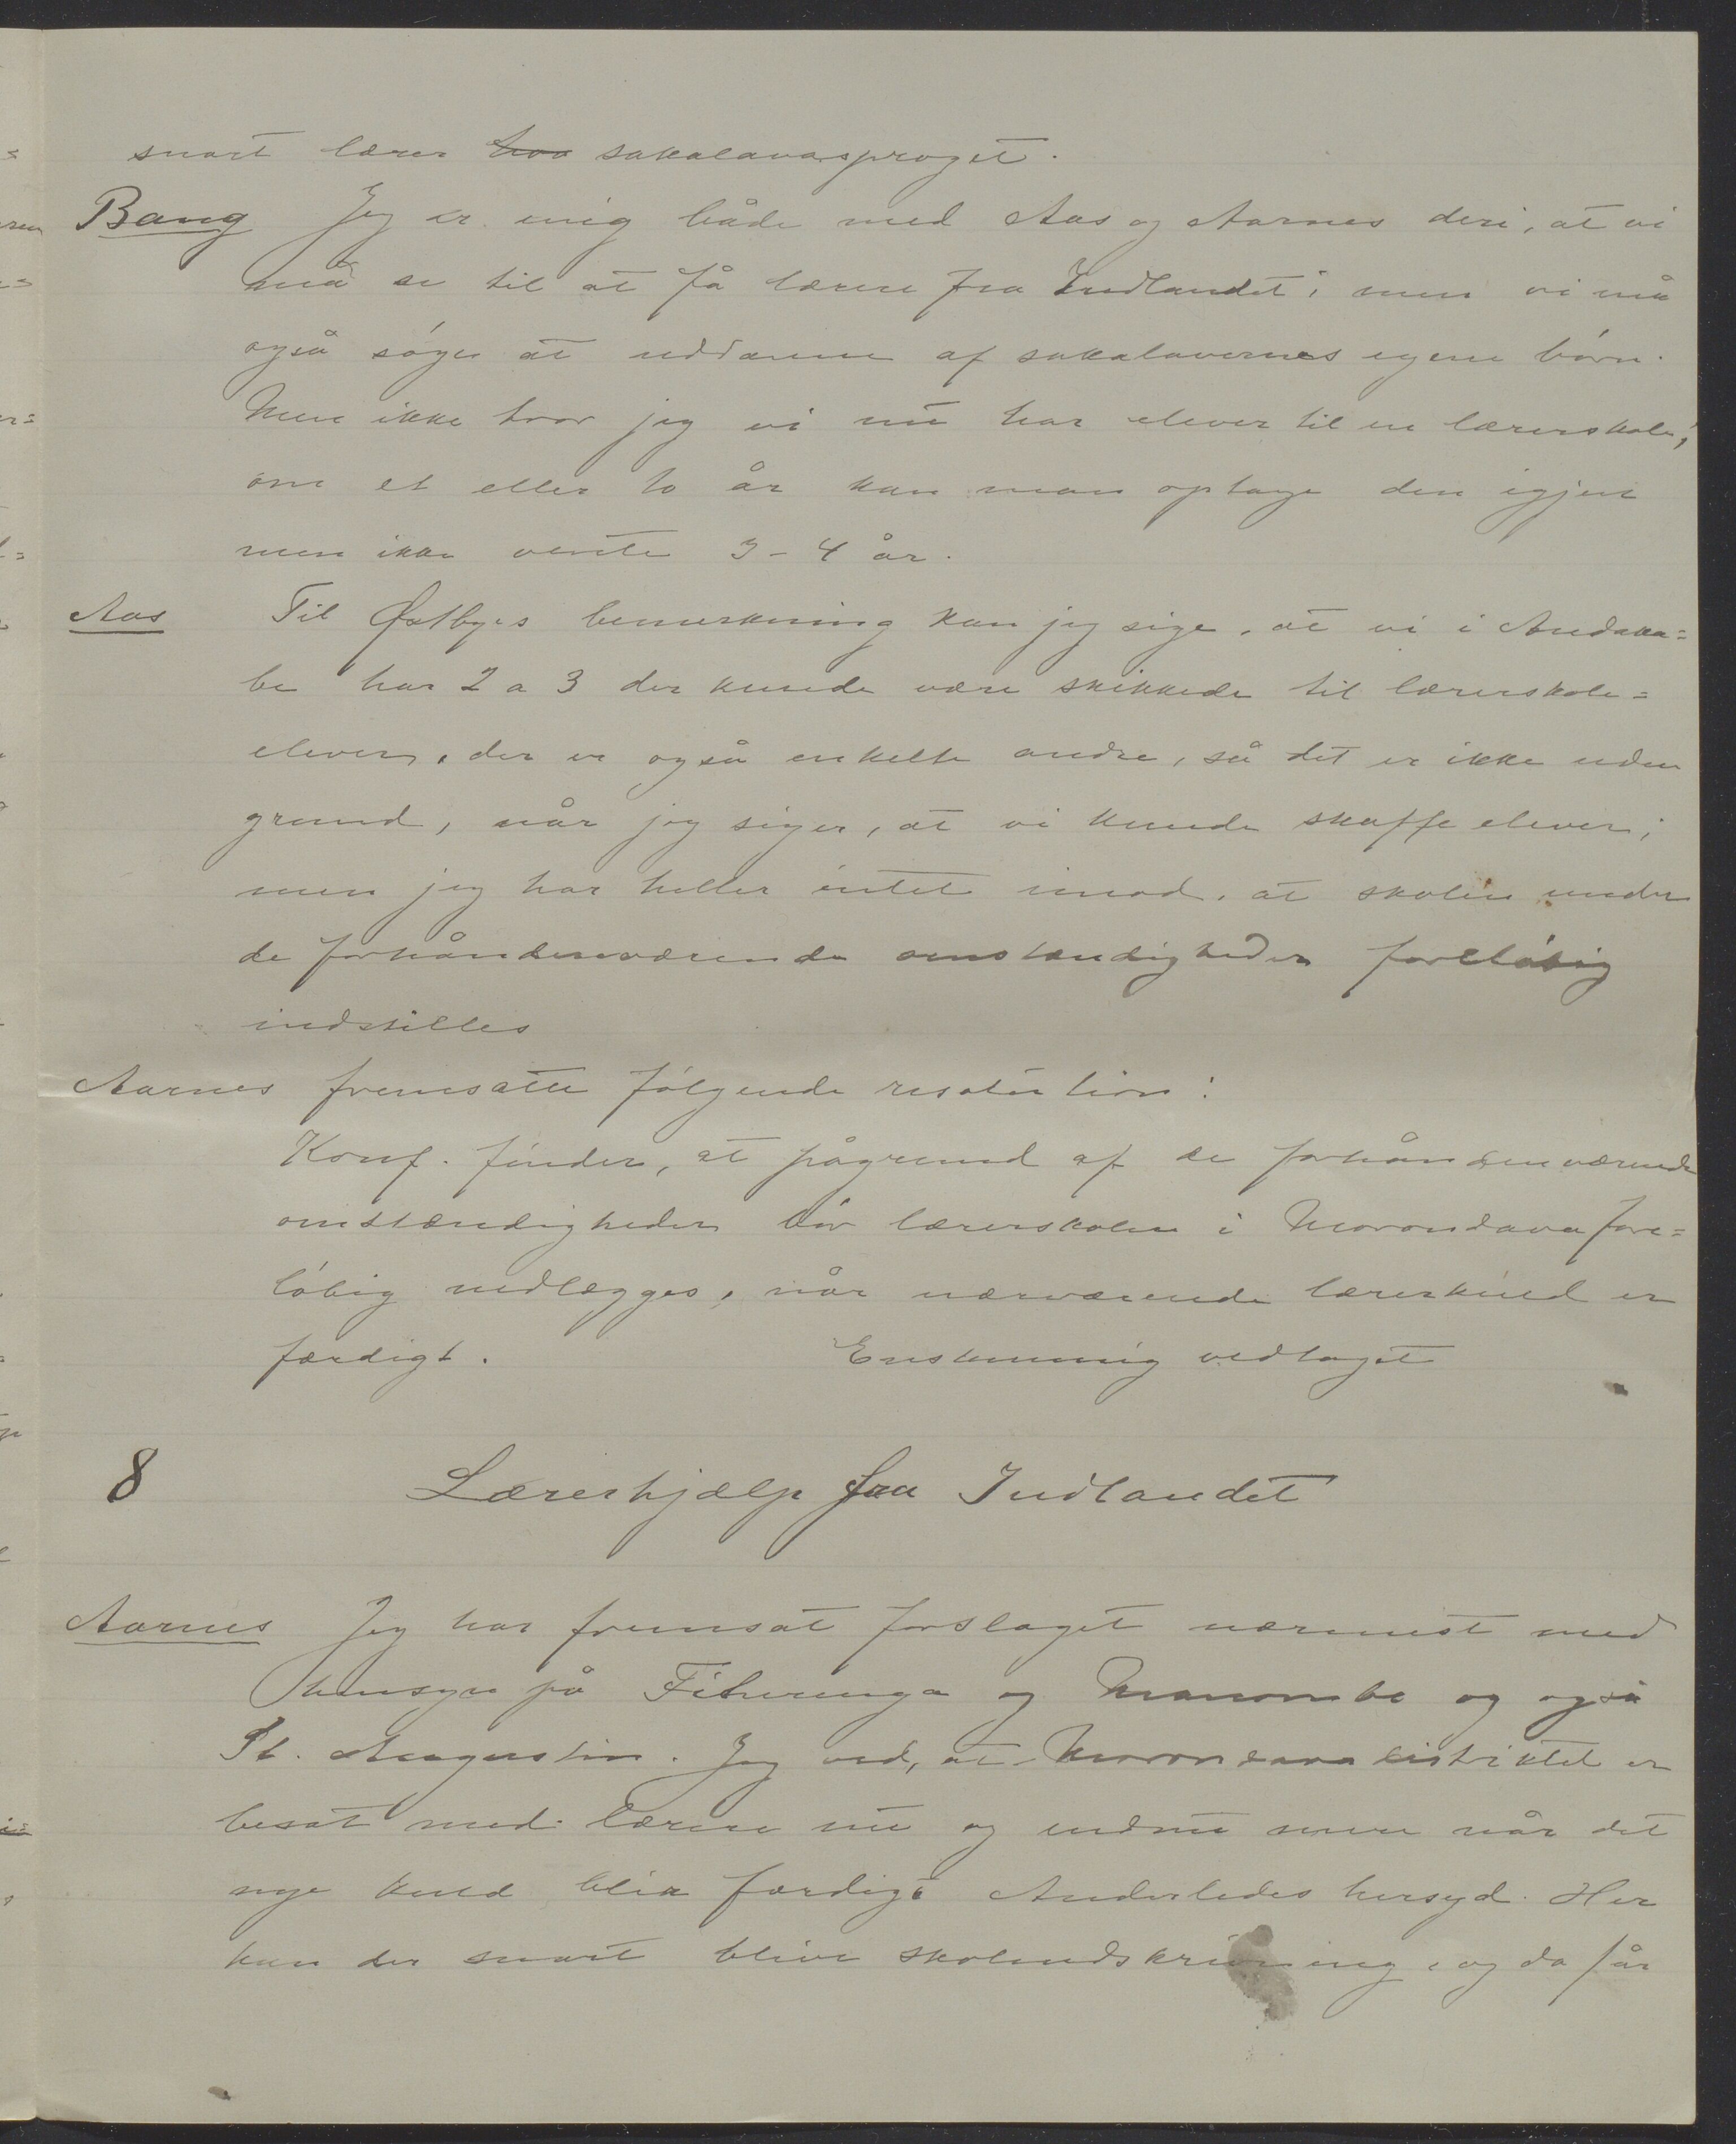 snart lærer hva sakalavasproget.
Bang Jeg er enig både med Aas og Aarnes deri, at vi
må se til at få lærere fra Indlandet; men vi må
også søge at uddanne af sakalavernes egne børn.
Men ikke tror jeg vi nu har elever til en lærerskole;
om et eller to år kan man optage den igjen
men ikke vente 3-4 år.
Aas Til Østbyes bemerkning kan jeg sige, at vi i Andaka=
be har 2 a 3 der kunde være skikkede til lærerskole=
elever, der er også enkelte andre, så det er ikke uden
grund, når jeg siger, at vi kunde skaffe elever;
men jeg har heller intet imod, at skolen under
de forhåndenværende omstændigheder foreløbig
indstilles
Aarnes fremsatte følgende resolution:
Konf. finder, at pågrund af de forhåndenværende
omstændigheder bør lærerskolen i Morondava fore=
løbig nedlægges, når nærværende lærerkuld er
færdigt. Enstemmig vedtaget
8 Lærerhjælp fra Indlandet
Aarnes Jeg har fremsat forslaget nærmest med
hensyn på Fiherenga og Manombo og også
St. Augustin. Jeg ved, at Morondava distriktet er
besat med lærere nu og endnu mere når det
nye kuld blir færdigt Anderledes hersyd. Her
kan der snart blive skoleudskrivning, og da får